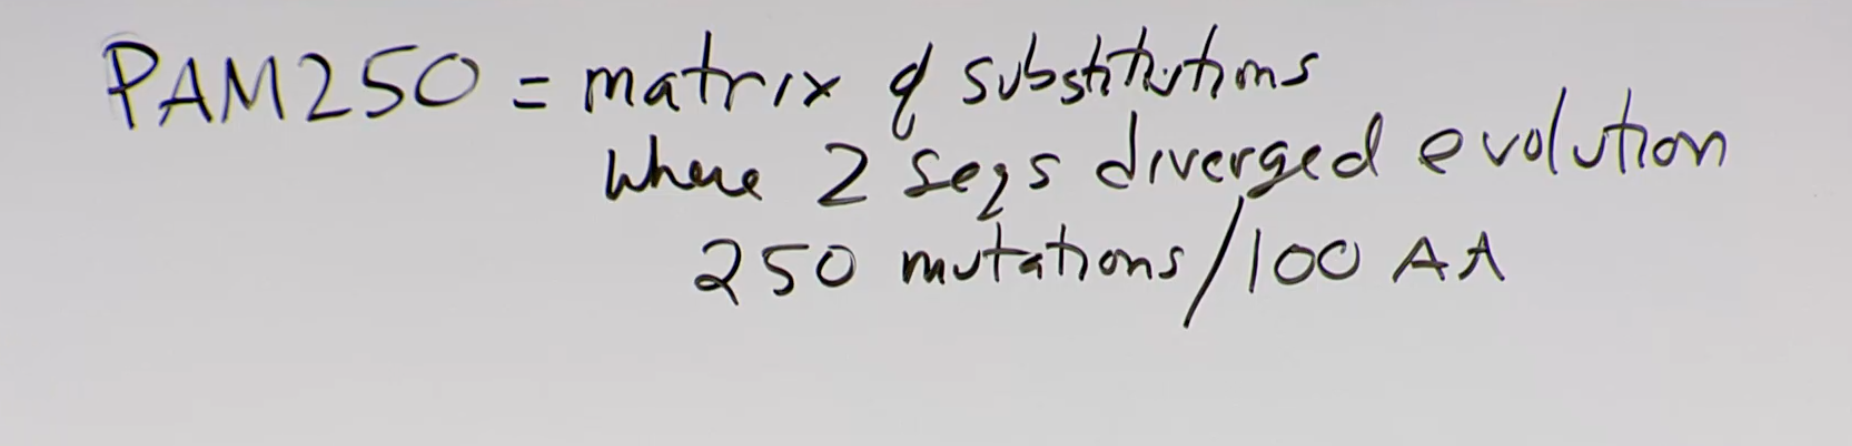 PAM250 = matrix of substitutions
where 2 seqs diverged evolution
250 mutations/100 AA